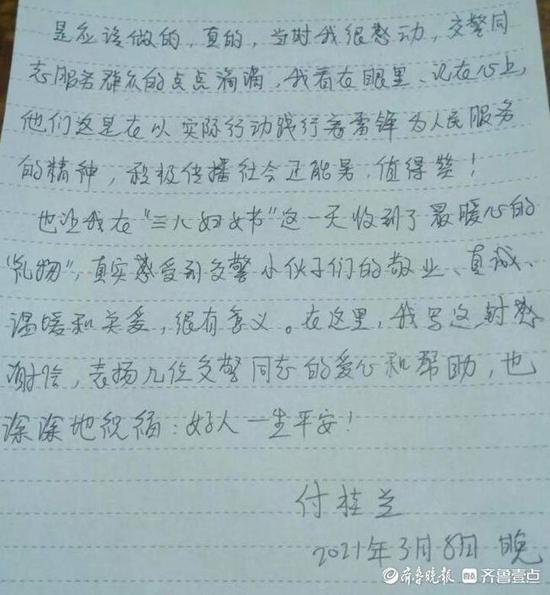 是应该做的，真的，当时我很感动，交警同
志服务群众的点点滴滴，我看在眼里、记在心上，
他们这是在以实际行动践行着雷锋为人民服务
的精神，积极传播社会正能量，值得赞！
也让我在“三八妇女节”这一天收到了最暖心的
“礼物”，真实感受到交警小伙子们的敬业、真诚、
温暖和关爱，很有意义。在这里，我写这封感
谢信，表扬几位交警同志的爱心和帮助，也
深深地祝福：好人一生平安！
付桂兰
2021年3月8日 晚
齐鲁晚报 齐鲁壹点